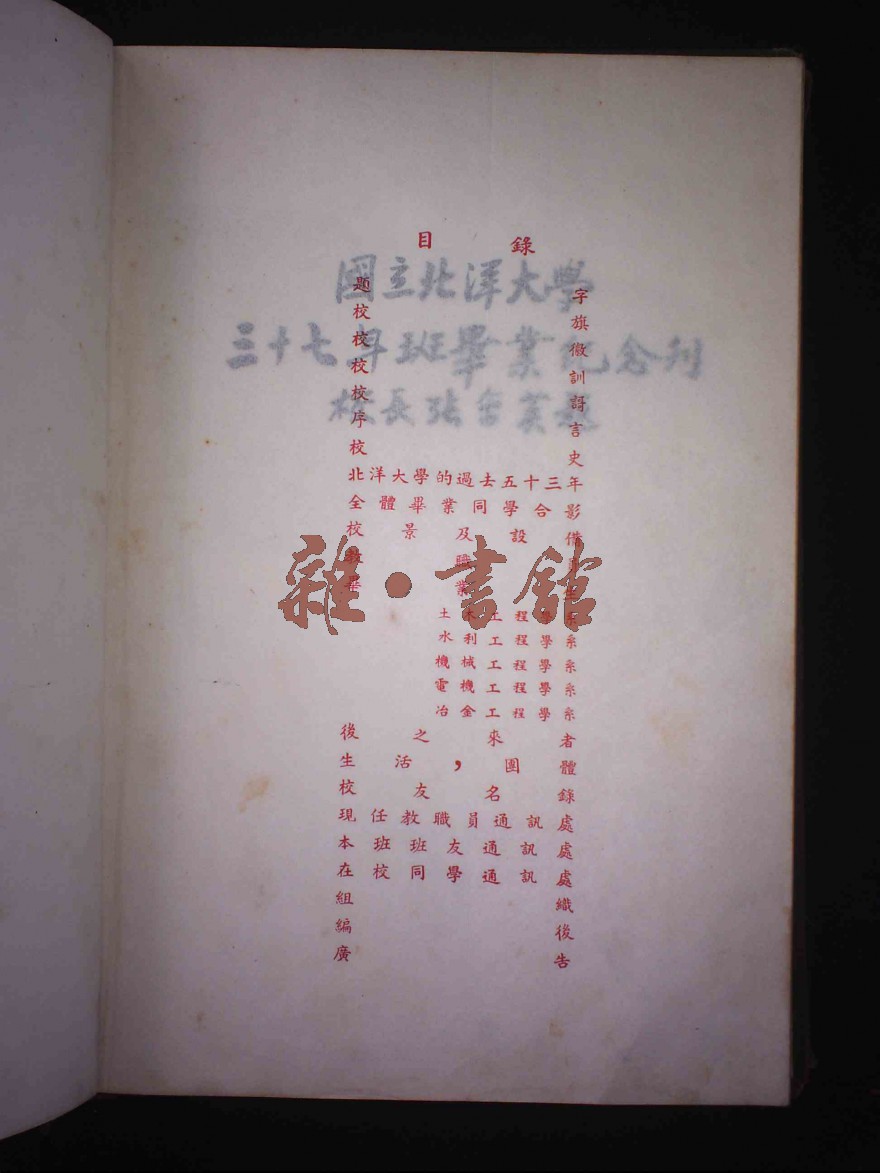 目錄
國立北洋大學
三十七年班畢業紀念刊
校長張含英題
題字
校旗
校徽
校訓
校訶
序言
校史
北洋大學的過去五十三年
全體畢業同學合影
校景及設備
職
業
土木工程學系
水利工程學系
機械工程學系
電機工程學系
冶金工程學系
後之來者
生活,團體
校友名錄
現任教職員通訊處
本班班友通訊處
在校同學通訊處
組織
編後
廣告
雜·書館